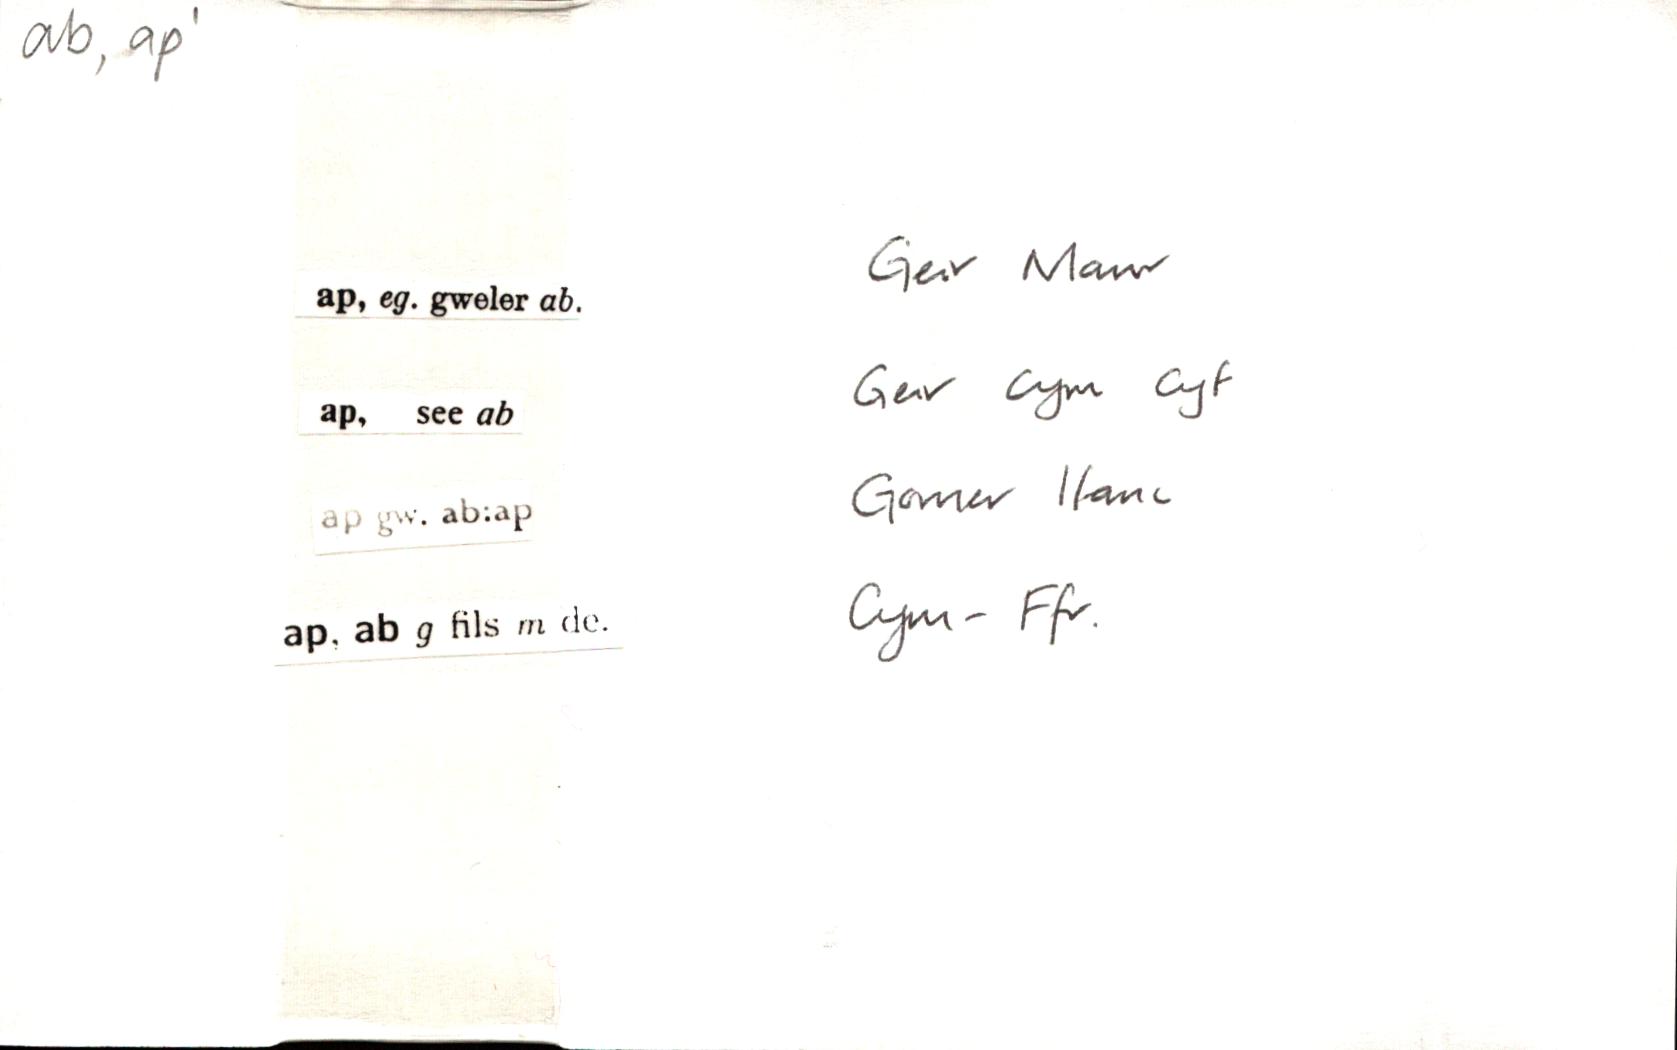 ab, ap¹
ap, eg. gweler ab. Geir Mawr
ap, see ab Geir Cym Cyf
ap gw. ab:ap Gomer Ifanc
ap, ab g fils m de. Cym-Ffr.